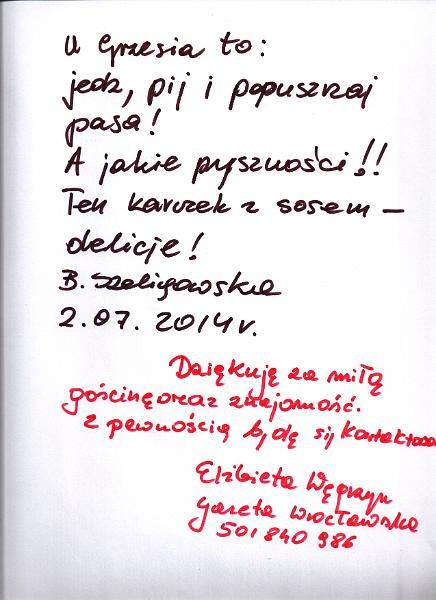 U Grzesia to:
jedz, pij i popuszczaj
pasa!
A jakie pyszności!!
Ten karczek z sosem –
delicje!
B. Szeligowska
2.07.2014 r.
Dziękuję za miłą
gościnę oraz znajomość.
Z pewnością będę się kontaktować
Elżbieta Węgrzyn
Gazeta Wrocławska
501 840 986